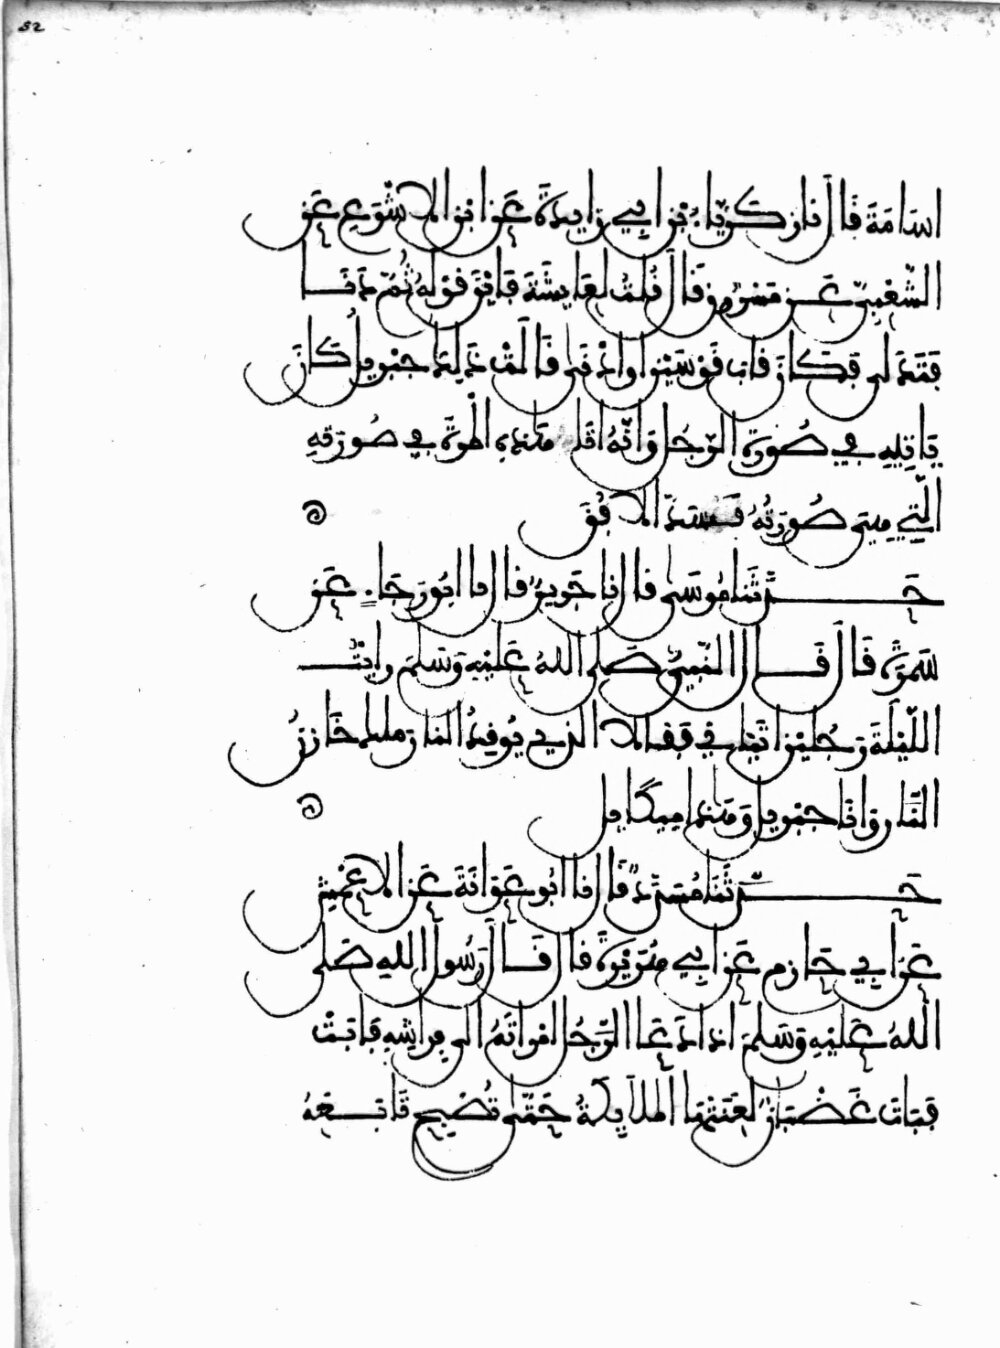 52
اسَامَةَ قَالَ نا زكَرِيَّاءُ بْنُ أبِي زايِدَةَ عَنِ ابْنِ الاشْوَعِ عَنِ
الشَّعْبِيِّ عَنْ مَسْرُوقٍ قَالَ قُلْتُ لِعَايِشَةَ فَايْنَ قَوْلُهُ ثُمَّ دَنَا
فَتَدَلى فَكَانَ قَابَ قَوْسَيْنِ اوَ ادْنى قَالَتْ ذَلِكَ جِبْرِيلُ كَانَ
يَاتِيهِ فِي صُورَةِ الرَّجُلِ وَانَّهُ اتَاهُ هَذِهِ الْمَرَّةَ فِي صُورَتِهِ
الَّتِي هِيَ صُورَتُهُ فَسَدَّ الافُقَ
حَدَّثَنَا مُوسَى قال نا جَرِيرٌ قال نا ابُو رَجَاءٍ عَنْ
سَمُرَةَ قَالَ قَالَ النَّبِيُّ صَلى اللهُ عَلَيْهِ وَسَلمَ رايْتُ
اللَّيْلَةَ رَجُلَيْنِ اتَيَانِي فَقَالا الذِي يُوقِدُ النَّارَ مَالِكٌ خَازِنُ
النَّارِ وَانَا جِبْرِيلُ وَهَذَا مِيكَايِلُ
حَدَّثَنَا مُسَدَّدٌ قَالَ نا ابُو عَوَانَةَ عَنِ الاعْمَشِ
عَنْ أبِي حَازِمٍ عَنْ أبِي هُرَيْرَةَ قَالَ قَالَ رَسُولُ اللهِ صَلى
اللهُ عَلَيْهِ وَسَلمَ اذا دَعَا الرَّجُلُ امْرَاتَهُ الى فِرَاشِهِ فَابَتْ
فَبَاتَ غَضْبَانَ لَعَنَتْهَا الملايِكَةُ حَتَّى تُصْبِحَ تَابَعَهُ